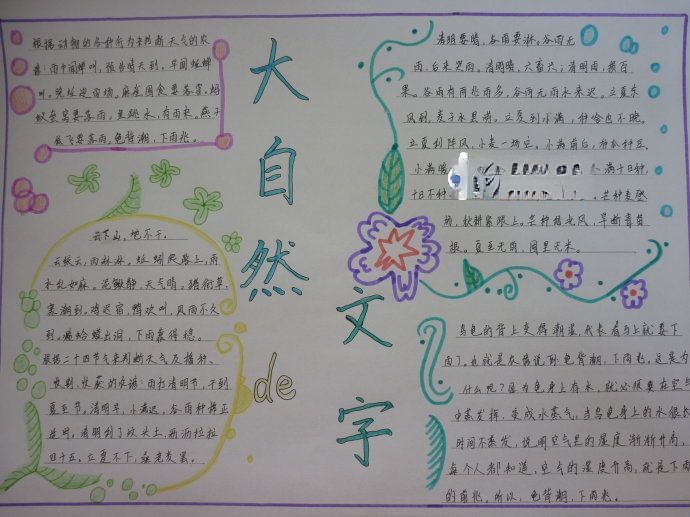 大自然
de
文字
根据动物的各种行为来判断天气的农
谚:雨中闻蝉叫,预告晴天到。早间蛙蝉
叫,晚些迎雷场。麻雀囤食要落雪,蚂
蚁垒窝要落雨。鱼跳水,有雨来。燕子
低飞要落雨。龟背潮,下雨兆。
云下山,地不干。
云绞云,雨淋淋。蚯蚓爬路上,雨
水乱如麻。泥鳅静,天气晴。
寒潮到。鸡迟宿,鸭欢叫,风雨不久
到。癞蛤蟆出洞,下雨靠得稳。
根据二十四节气来判断天气及播种、
收割、收获的农谚:雨打清明节,干到
夏至节。清明早,小满迟,谷雨种棉正
适时。清明刮了坟头土,沥沥拉拉
四十五。立夏不下,桑老麦罢。
清明要晴,谷雨要淋。谷雨无
雨,后来哭雨。清明晴,六畜兴;清明雨,损百
果。谷雨有雨兆雨多,谷雨无雨水来迟。立夏东
风到,麦子水里捞。立夏到小满,种啥也不晚。
立夏到阵风,小麦一场空。小满前后,种瓜种豆。
小满暖
满十日种,
十日不种
芒种麦登
场,秋耕紧跟上。芒种刮北风,旱断青苗
根。夏至无雨,囤里无米。
乌龟的背上变得潮湿,代表着马上就要下
雨了。也就是农谚说到龟背潮,下雨兆。这是为
什么呢?因为龟身上有水,就必须要在空气
中蒸发掉,变成水蒸气,当乌龟身上的水很长
时间不蒸发,说明空气里的湿度渐渐升高,
每个人都知道,空气的湿度升高,就是下雨
的前兆。所以,龟背潮,下雨兆。